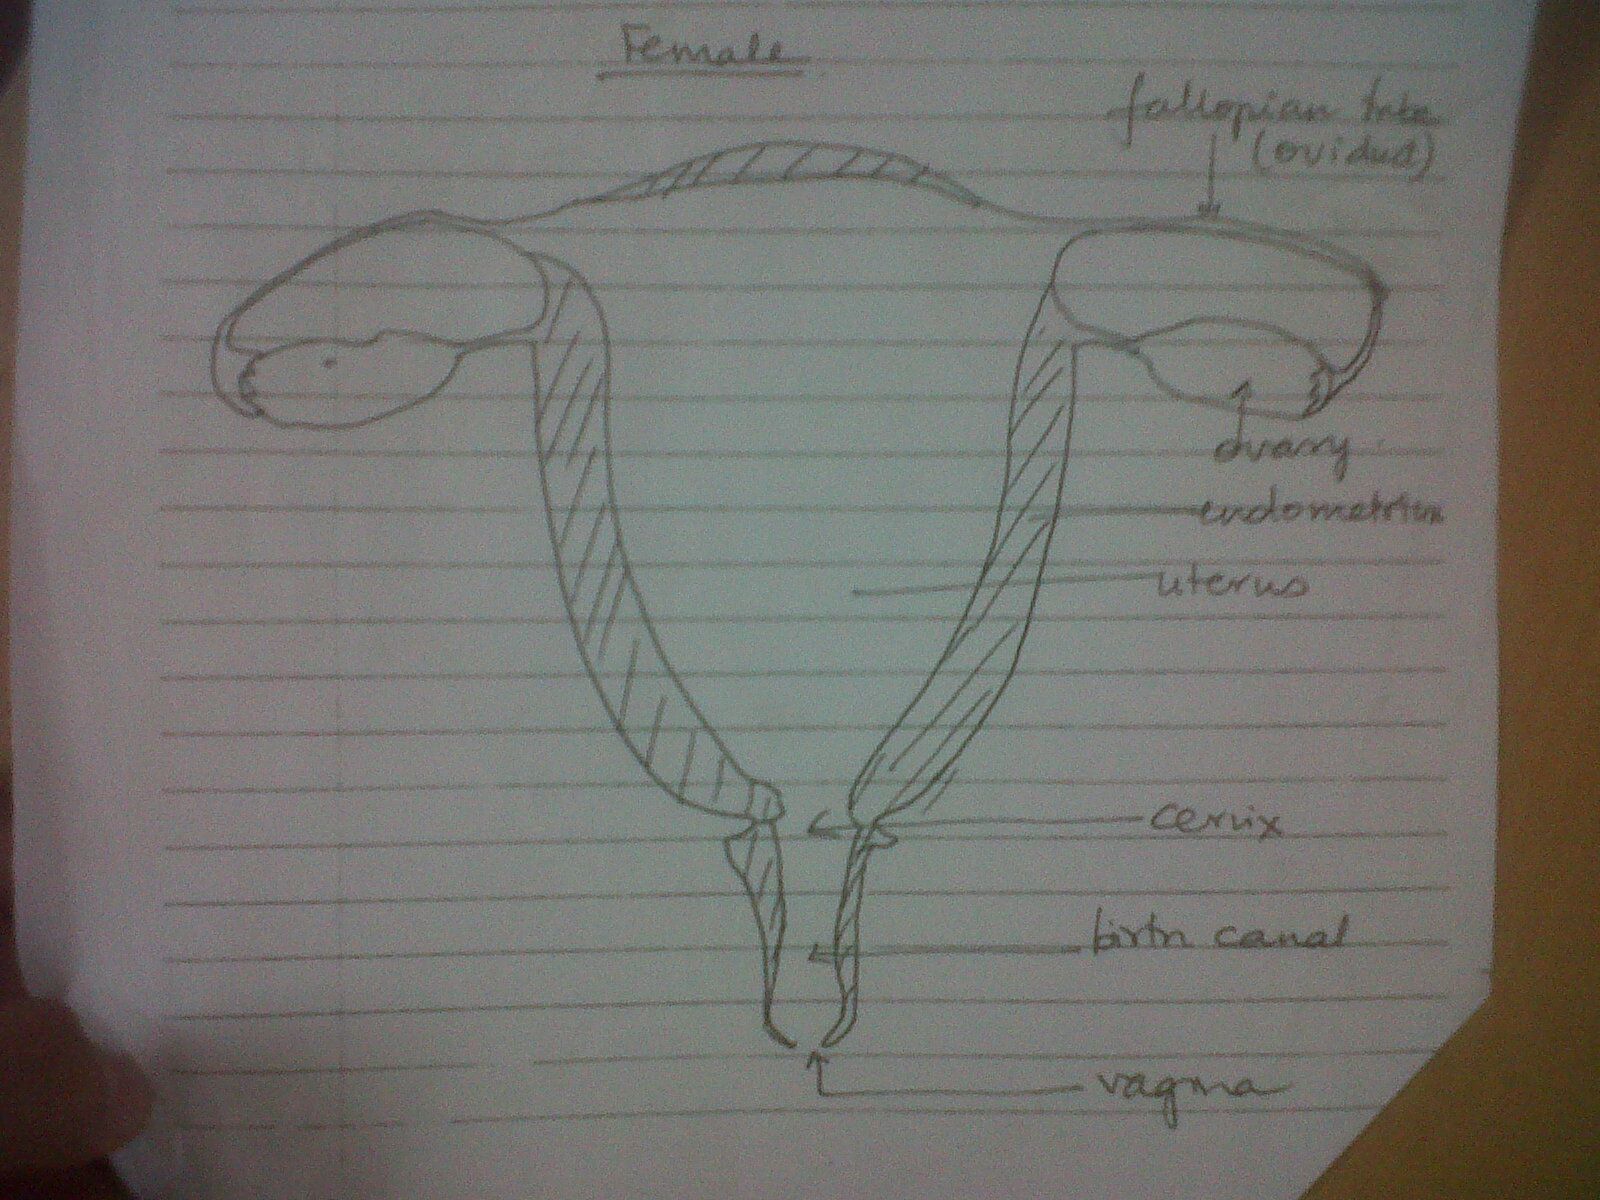 Female
fallopian tube
(oviduct)
ovary
endometrium
uterus
cervix
birth canal
vagina